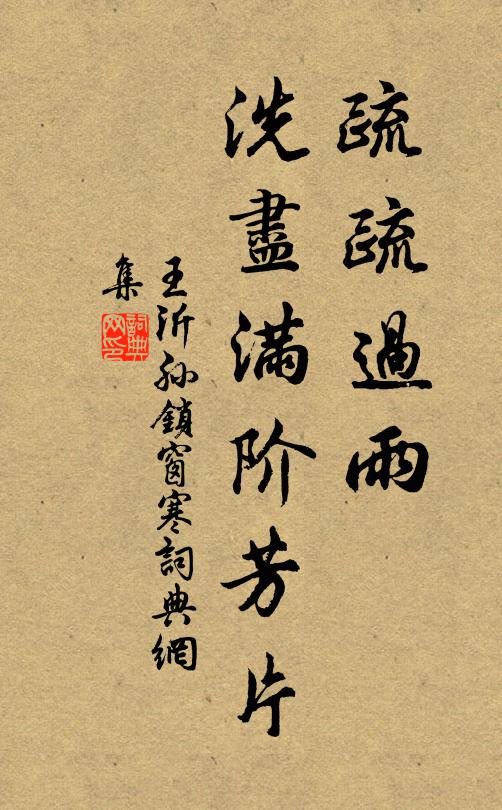 疏疏過雨
洗盡滿阶芳片
王沂孫鎖窗寒詞典網
集
詞典
网印